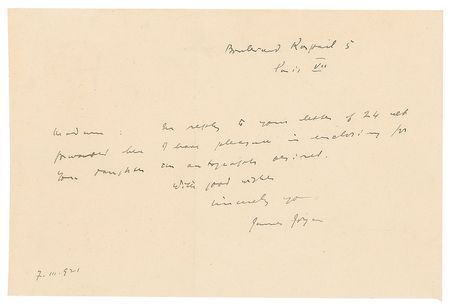 Boulevard Raspail 5
Paris VII
Madam: In reply to your letter of 24 ult
forwarded here I have pleasure in enclosing for
your daughter the autograph desired.
With good wishes
sincerely yours
James Joyce
7.III.921